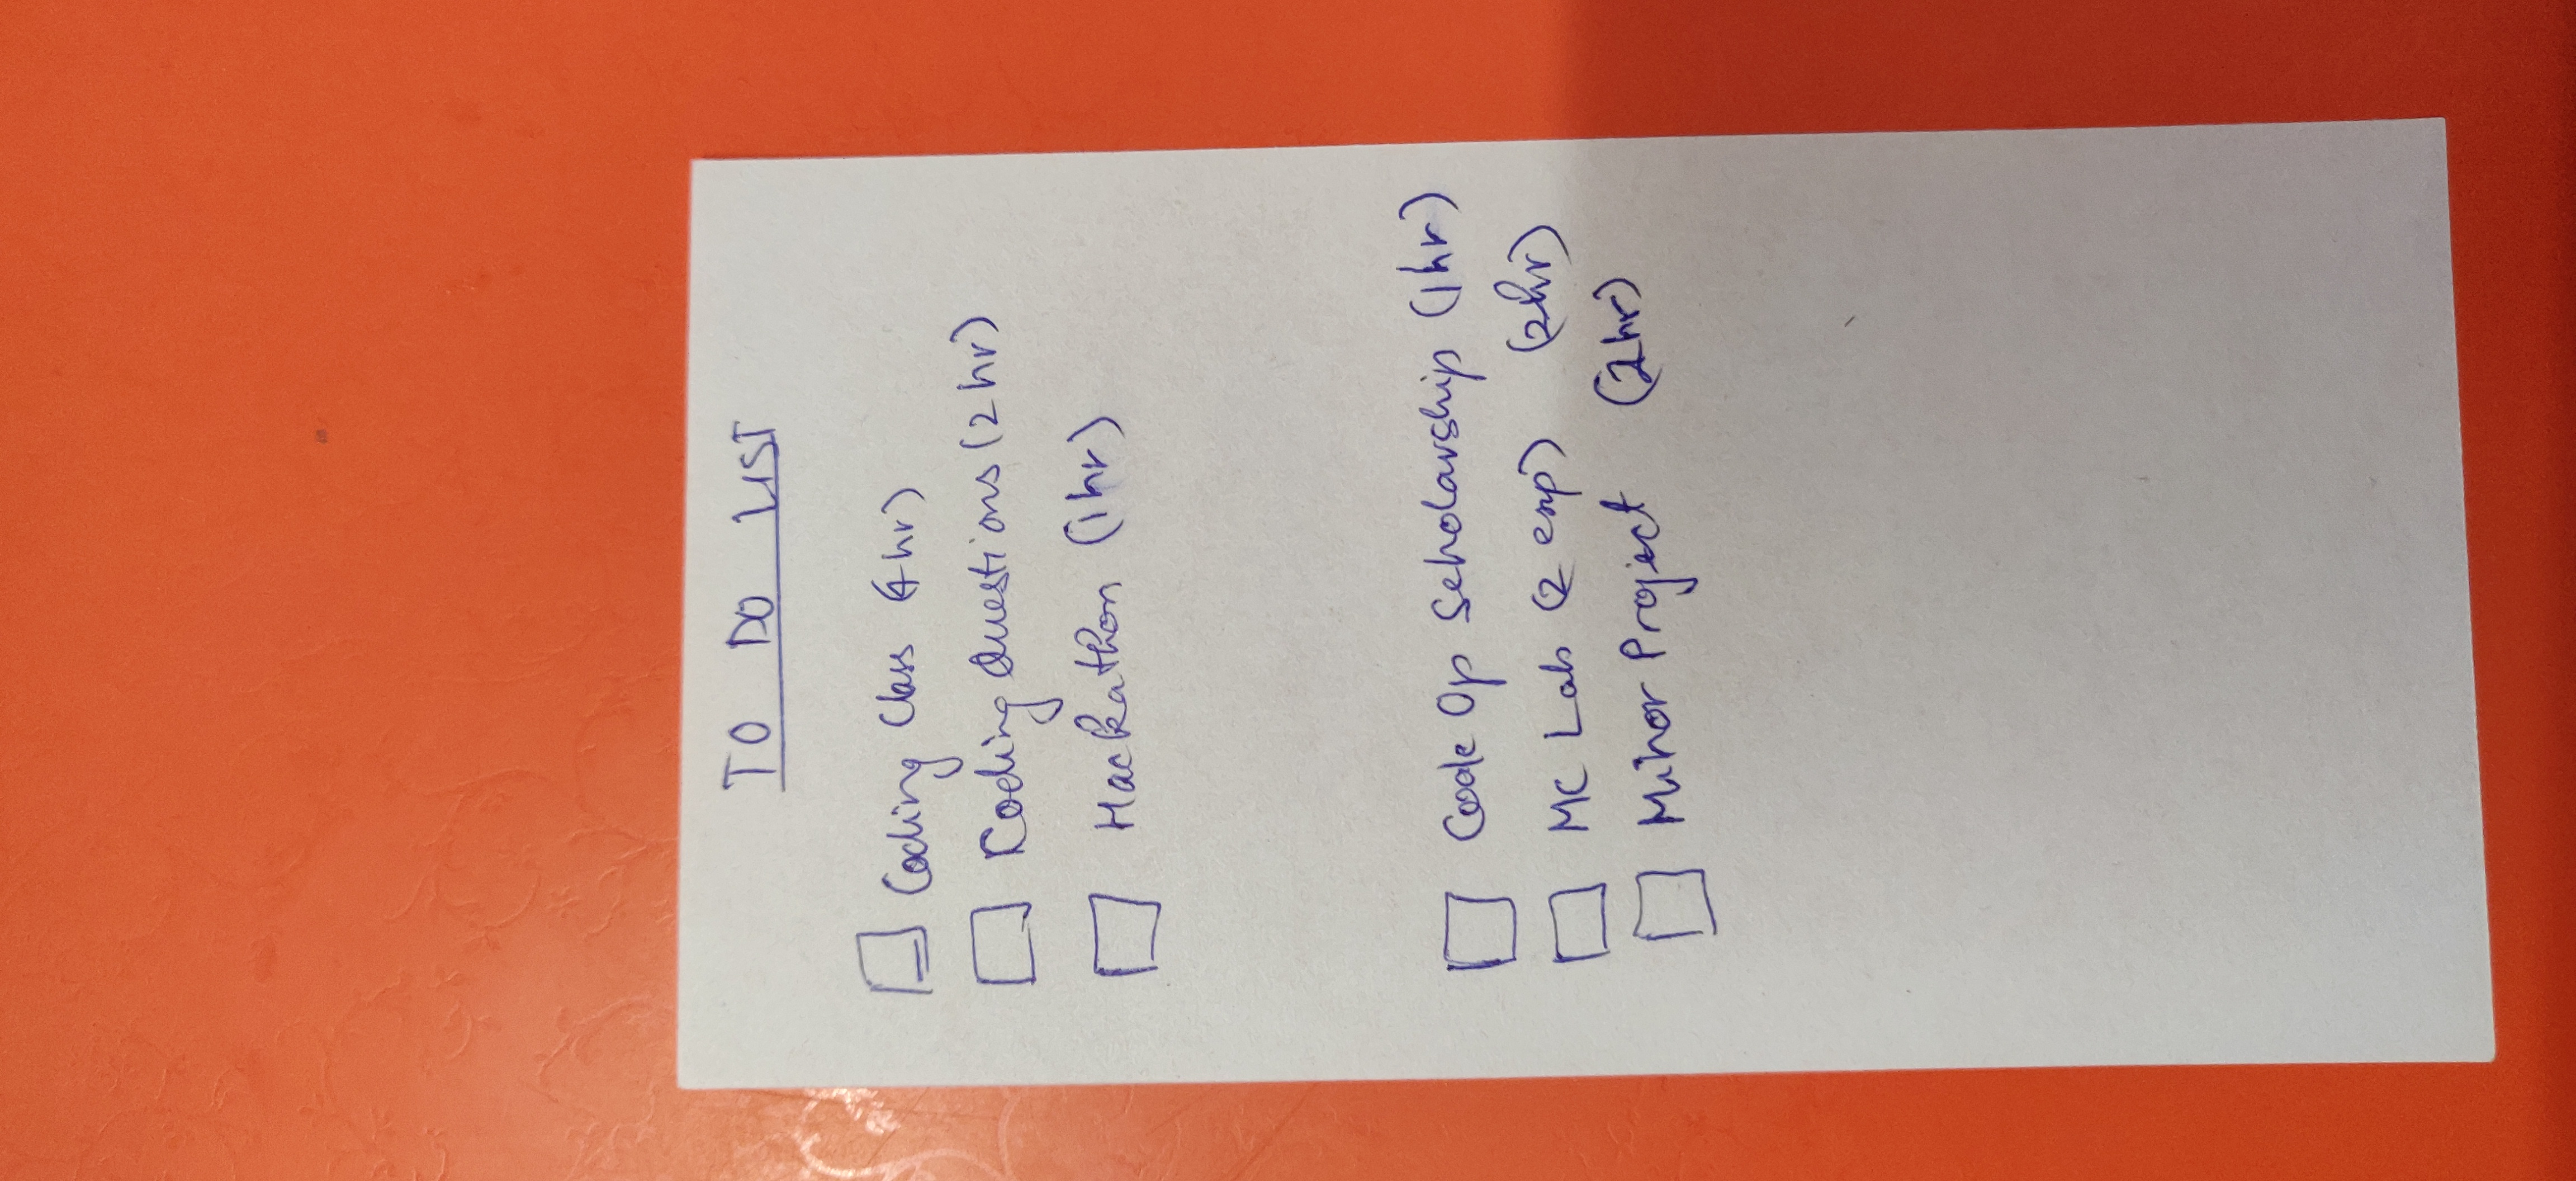 TO DO LIST
Coding Class (4hr)
Coding Questions (2 hr)
Hackathon (1 hr)
Code Op Scholarship (1hr)
MC Lab (2 exp) (2hr)
Minor Project (2hr)